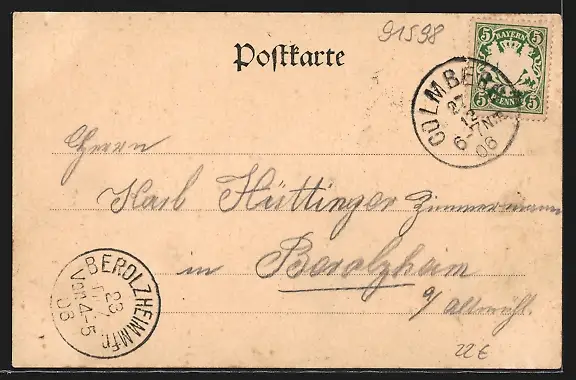 91598
Postkarte
5 BAYERN 5
5 PFENNIG 5
COLMBERG
27
12
6-7 Nm
06
Herrn
Karl Hüttinger Zimmermann
in Berolzheim
a/ Altmühl.
BEROLZHEIM Mfr.
Vor. 4-5
08
22 €